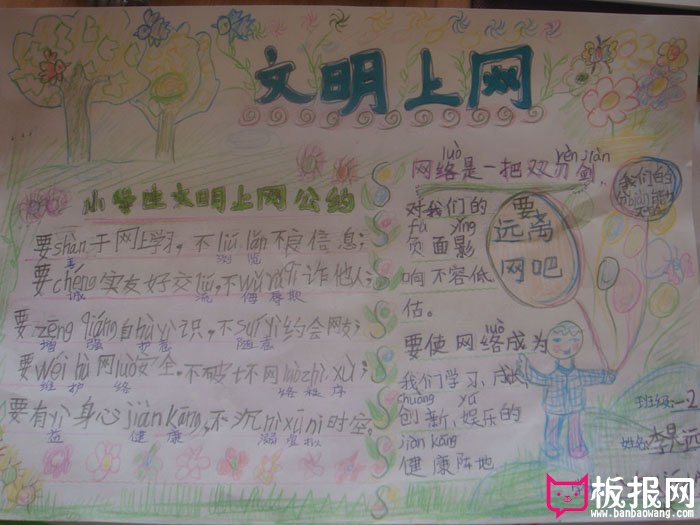 文明上网
小学生文明上网公约
要shàn于网上学习,不liú lǎn不良信息;
善 浏览
要chéng实友好交liú,不wǔ rǔ qī诈他人;
诚 流 侮辱欺
要zēng qiáng自hù yì识,不suí yì约会网友;
增强 护意 随意
要wéi hù网luò安全,不破坏网luò zhì xù;
维护 络 络秩序
要有yì身心jiàn kāng,不沉nì xū nǐ时空。
益 健康 溺虚拟
luò rèn jiàn
网络是一把双刃剑,
对我们的
fù yǐng
负面影
响不容低
估。
luò
要使网络成为
我们学习、成长、
chuàng yú
创新、娱乐的
jiàn kāng
健康阵地
要
远离
网吧
我们的
班级:一2
姓名:李
板报网
www.banbaowang.com